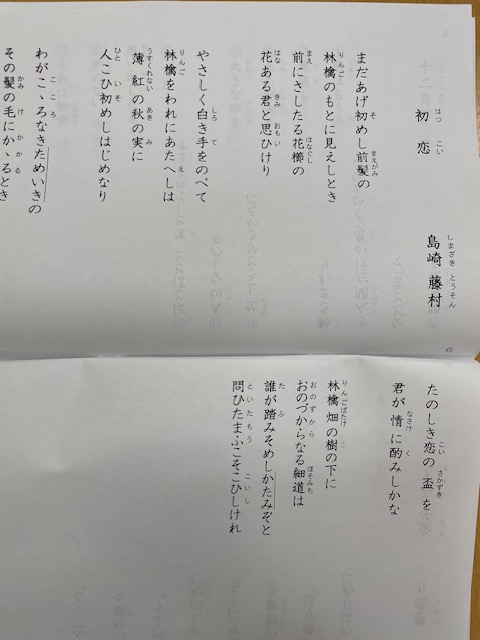 初恋
島崎 藤村
まだあげ初めし前髪の
林檎のもとに見えしとき
前にさしたる花櫛の
花ある君と思ひけり
やさしく白き手をのべて
林檎をわれにあたへしは
薄紅の秋の実に
人こひ初めしはじめなり
わがこゝろなきためいきの
その髪の毛にかゝるとき
たのしき恋の盃を
君が情に酌みしかな
林檎畑の樹の下に
おのづからなる細道は
誰が踏みそめしかたみぞと
問ひたまふこそこひしけれ